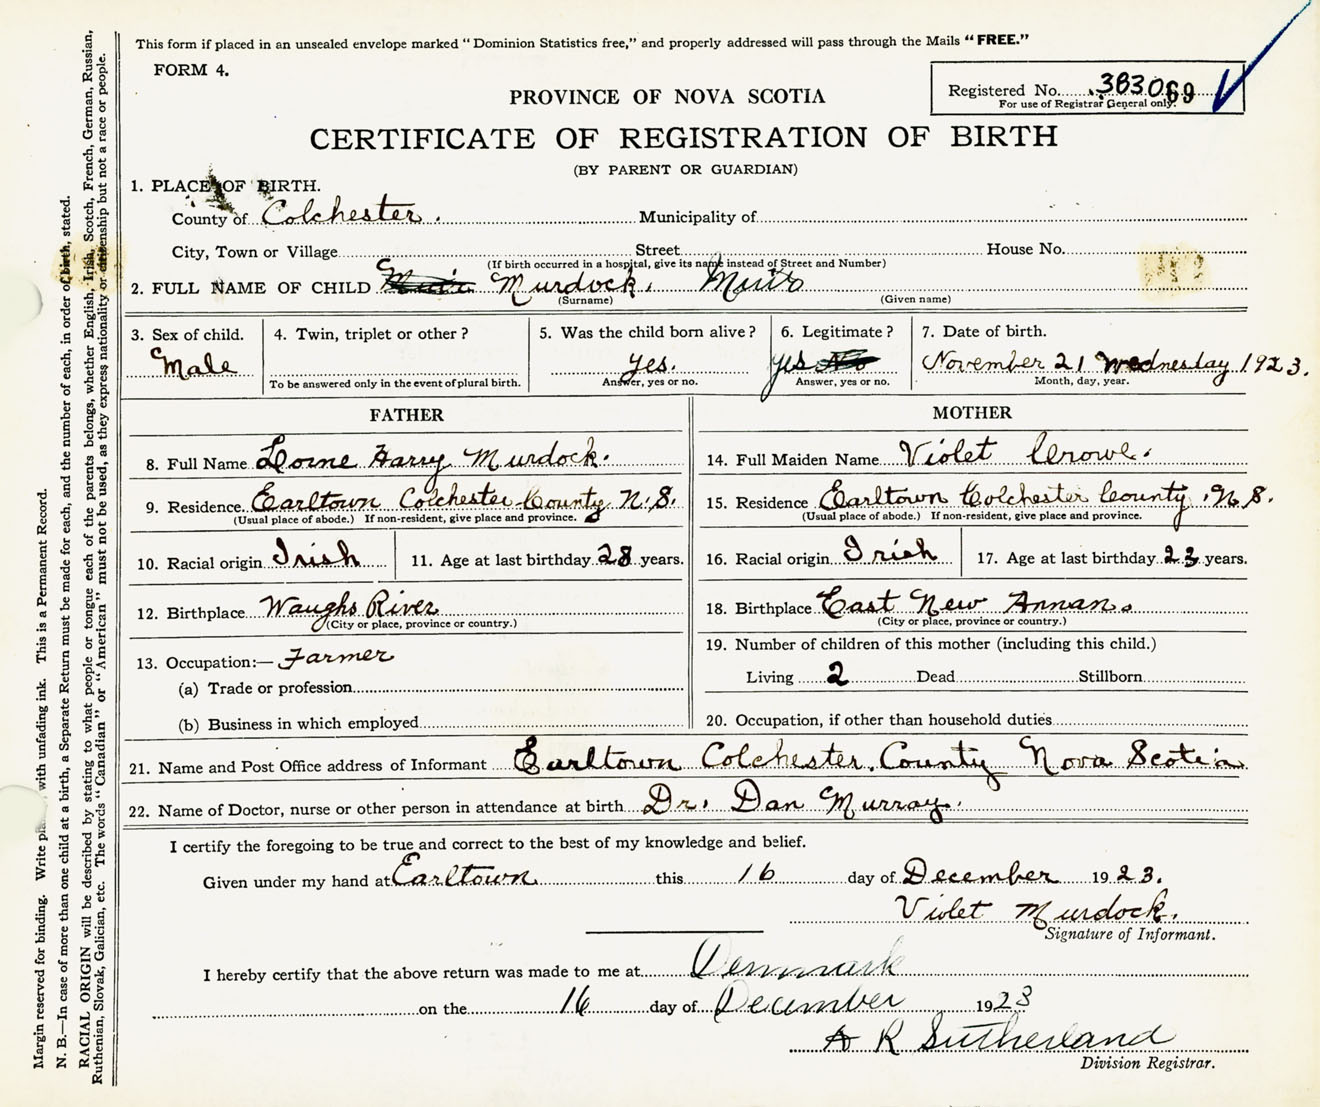 This form if placed in an unsealed envelope marked "Dominion Statistics free," and properly addressed will pass through the Mails "FREE."
FORM 4.
Registered No. 383069
For use of Registrar General only.
PROVINCE OF NOVA SCOTIA
CERTIFICATE OF REGISTRATION OF BIRTH
(BY PARENT OR GUARDIAN)
1. PLACE OF BIRTH.
County of Colchester. Municipality of
City, Town or Village Street House No.
(If birth occurred in a hospital, give its name instead of Street and Number)
2. FULL NAME OF CHILD Murdock.
(Surname) (Given name)
3. Sex of child. 4. Twin, triplet or other? 5. Was the child born alive? 6. Legitimate? 7. Date of birth.
Male yes. yes No November 21 Wednesday 1923.
To be answered only in the event of plural birth. Answer, yes or no. Answer, yes or no. Month, day, year.
FATHER
8. Full Name Lorne Harry Murdock.
9. Residence Earltown Colchester County N.S.
(Usual place of abode.) If non-resident, give place and province.
10. Racial origin Irish 11. Age at last birthday 28 years.
12. Birthplace Waughs River
(City or place, province or country.)
13. Occupation:— Farmer
(a) Trade or profession
(b) Business in which employed
MOTHER
14. Full Maiden Name Violet Crowe.
15. Residence Earltown Colchester County, N.S.
(Usual place of abode.) If non-resident, give place and province.
16. Racial origin Irish 17. Age at last birthday 23 years.
18. Birthplace East New Annan.
(City or place, province or country.)
19. Number of children of this mother (including this child.)
Living 2 Dead Stillborn
20. Occupation, if other than household duties
21. Name and Post Office address of Informant Earltown Colchester, County Nova Scotia
22. Name of Doctor, nurse or other person in attendance at birth Dr. Dan Murray.
I certify the foregoing to be true and correct to the best of my knowledge and belief.
Given under my hand at Earltown this 16 day of December 1923.
Violet Murdock.
Signature of Informant.
I hereby certify that the above return was made to me at Denmark
on the 16 day of December 1923
A R Sutherland
Division Registrar.
Margin reserved for binding. Write with unfading ink. This is a Permanent Record.
N. B.—In case of more than one child at a birth, a Separate Return must be made for each, and the number of each, in order of birth, stated.
RACIAL ORIGIN will be described by stating to what people or tongue each of the parents belongs, whether English, Irish, Scotch, French, German, Russian,
Ruthenian, Slovak, Galician, etc. The words "Canadian" or "American" must not be used, as they express nationality or citizenship but not a race or people.